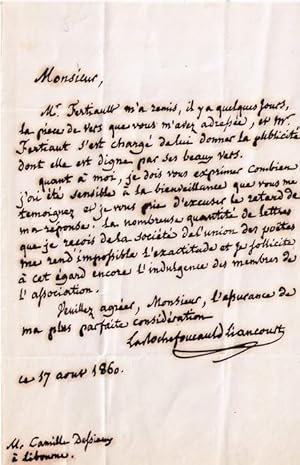 Monsieur,
Mr. Fertiault m'a remis, il y a quelques jours,
la pièce de vers que vous m'avez adressée, et Mr.
Fertiault s'est chargé de lui donner la publicité
dont elle est digne par ses beaux vers.
quant à moi, je dois vous exprimer combien
j'ai été sensible à la bienveillance que vous me
temoignez et je vous prie d'excuser le retard de
ma reponse. La nombreuse quantité de lettres
que je reçois de la société de l'union des poëtes
me rend impossible l'exactitude et je sollicite
à cet égard encore l'indulgence des membres de
l'association.
Veuillez agréer, Monsieur, l'assurance de
ma plus parfaite considération
LaRochefoucauld Liancourt
ce 17 aout 1860.
Mr. Camille
à Libourne.